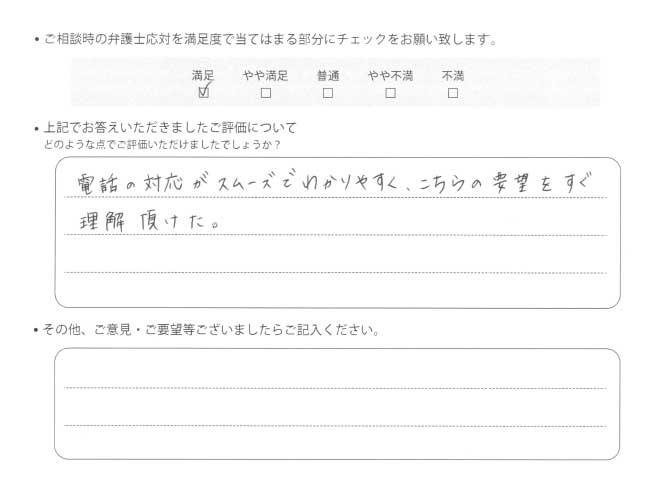 • ご相談時の弁護士応対を満足度で当てはまる部分にチェックをお願い致します。
満足 やや満足 普通 やや不満 不満
☑ □ □ □ □
• 上記でお答えいただきましたご評価について
どのような点でご評価いただけましたでしょうか？
電話の対応がスムーズでわかりやすく、こちらの要望をすぐ
理解頂けた。
• その他、ご意見・ご要望等ございましたらご記入ください。